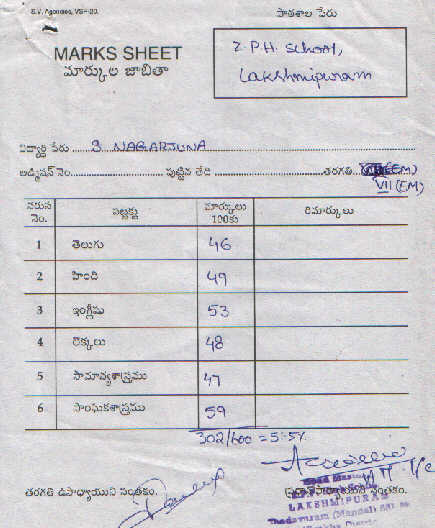 S.V. Agencies, VSP-20.
పాఠశాల పేరు
MARKS SHEET
మార్కుల జాబితా
Z.P.H. School,
Lakshmipuram
విద్యార్థి పేరు S NAGARJUNA
అడ్మిషన్ నెం. పుట్టిన తేది తరగతి (EM)
VII (EM)
వరుస నెం. సబ్జెక్టు మార్కులు 100కు రిమార్కులు
1 తెలుగు 46
2 హింది 49
3 ఇంగ్లీషు 53
4 లెక్కలు 48
5 సామాన్యశాస్త్రము 47
6 సాంఘికశాస్త్రము 59
302/600 =
తరగతి ఉపాధ్యాయుని సంతకం. ప్రధానోపాధ్యాయుని సంతకం.
Head Master
LAKSHMIPURAM